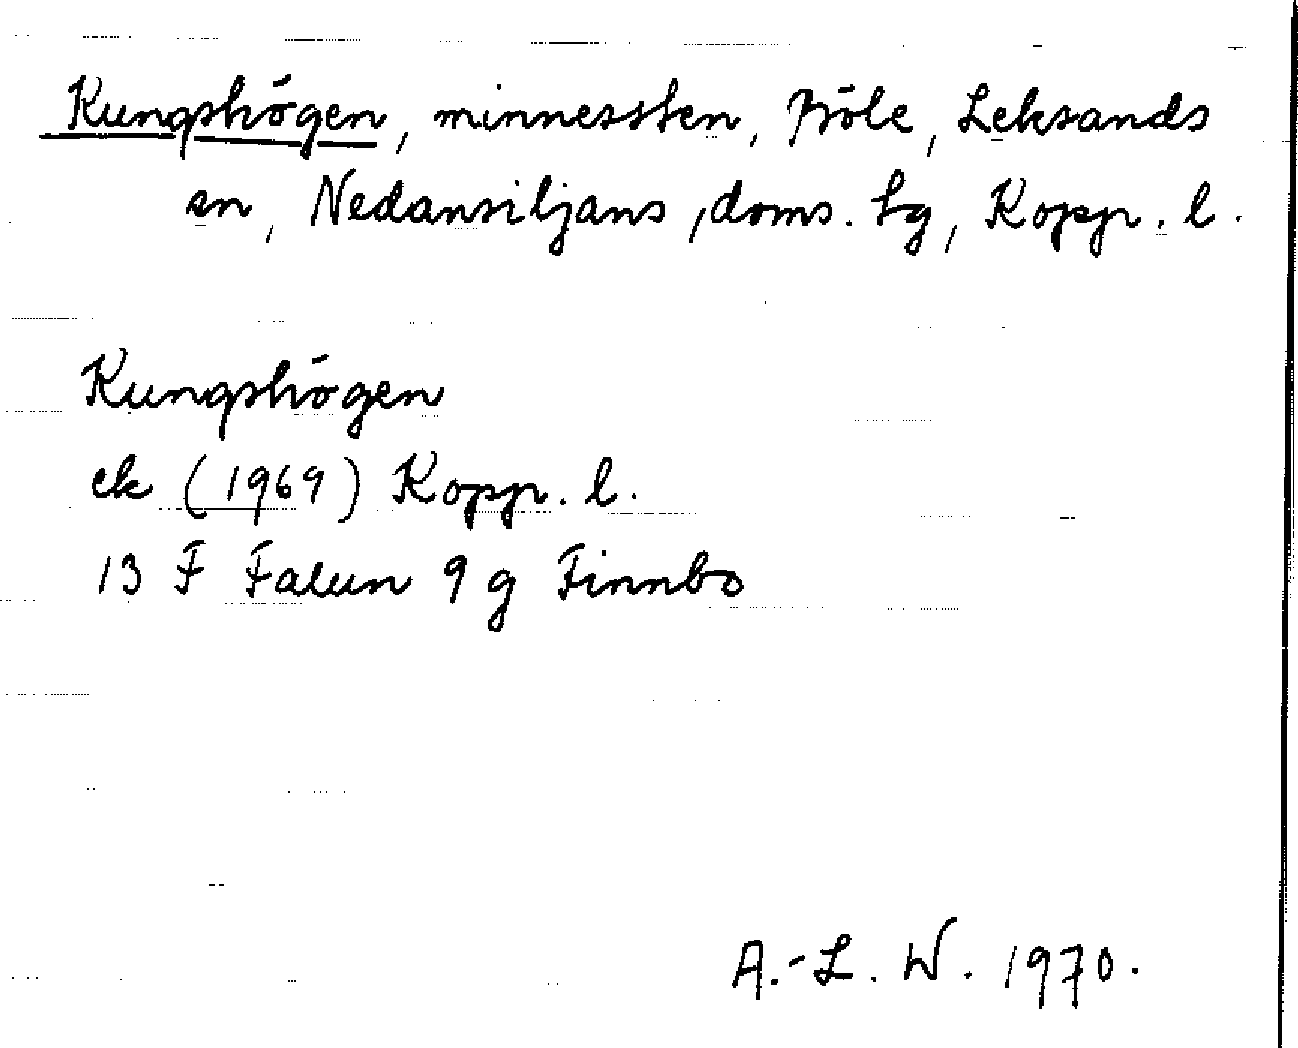 Kungshögen, minnessten, Böle, Leksands
sn, Nedansiljans, doms. lg, Kopp. l.
Kungshögen
ek (1969) Kopp. l.
13 F Falun 9 g Finnbo
A.-L. W. 1970.